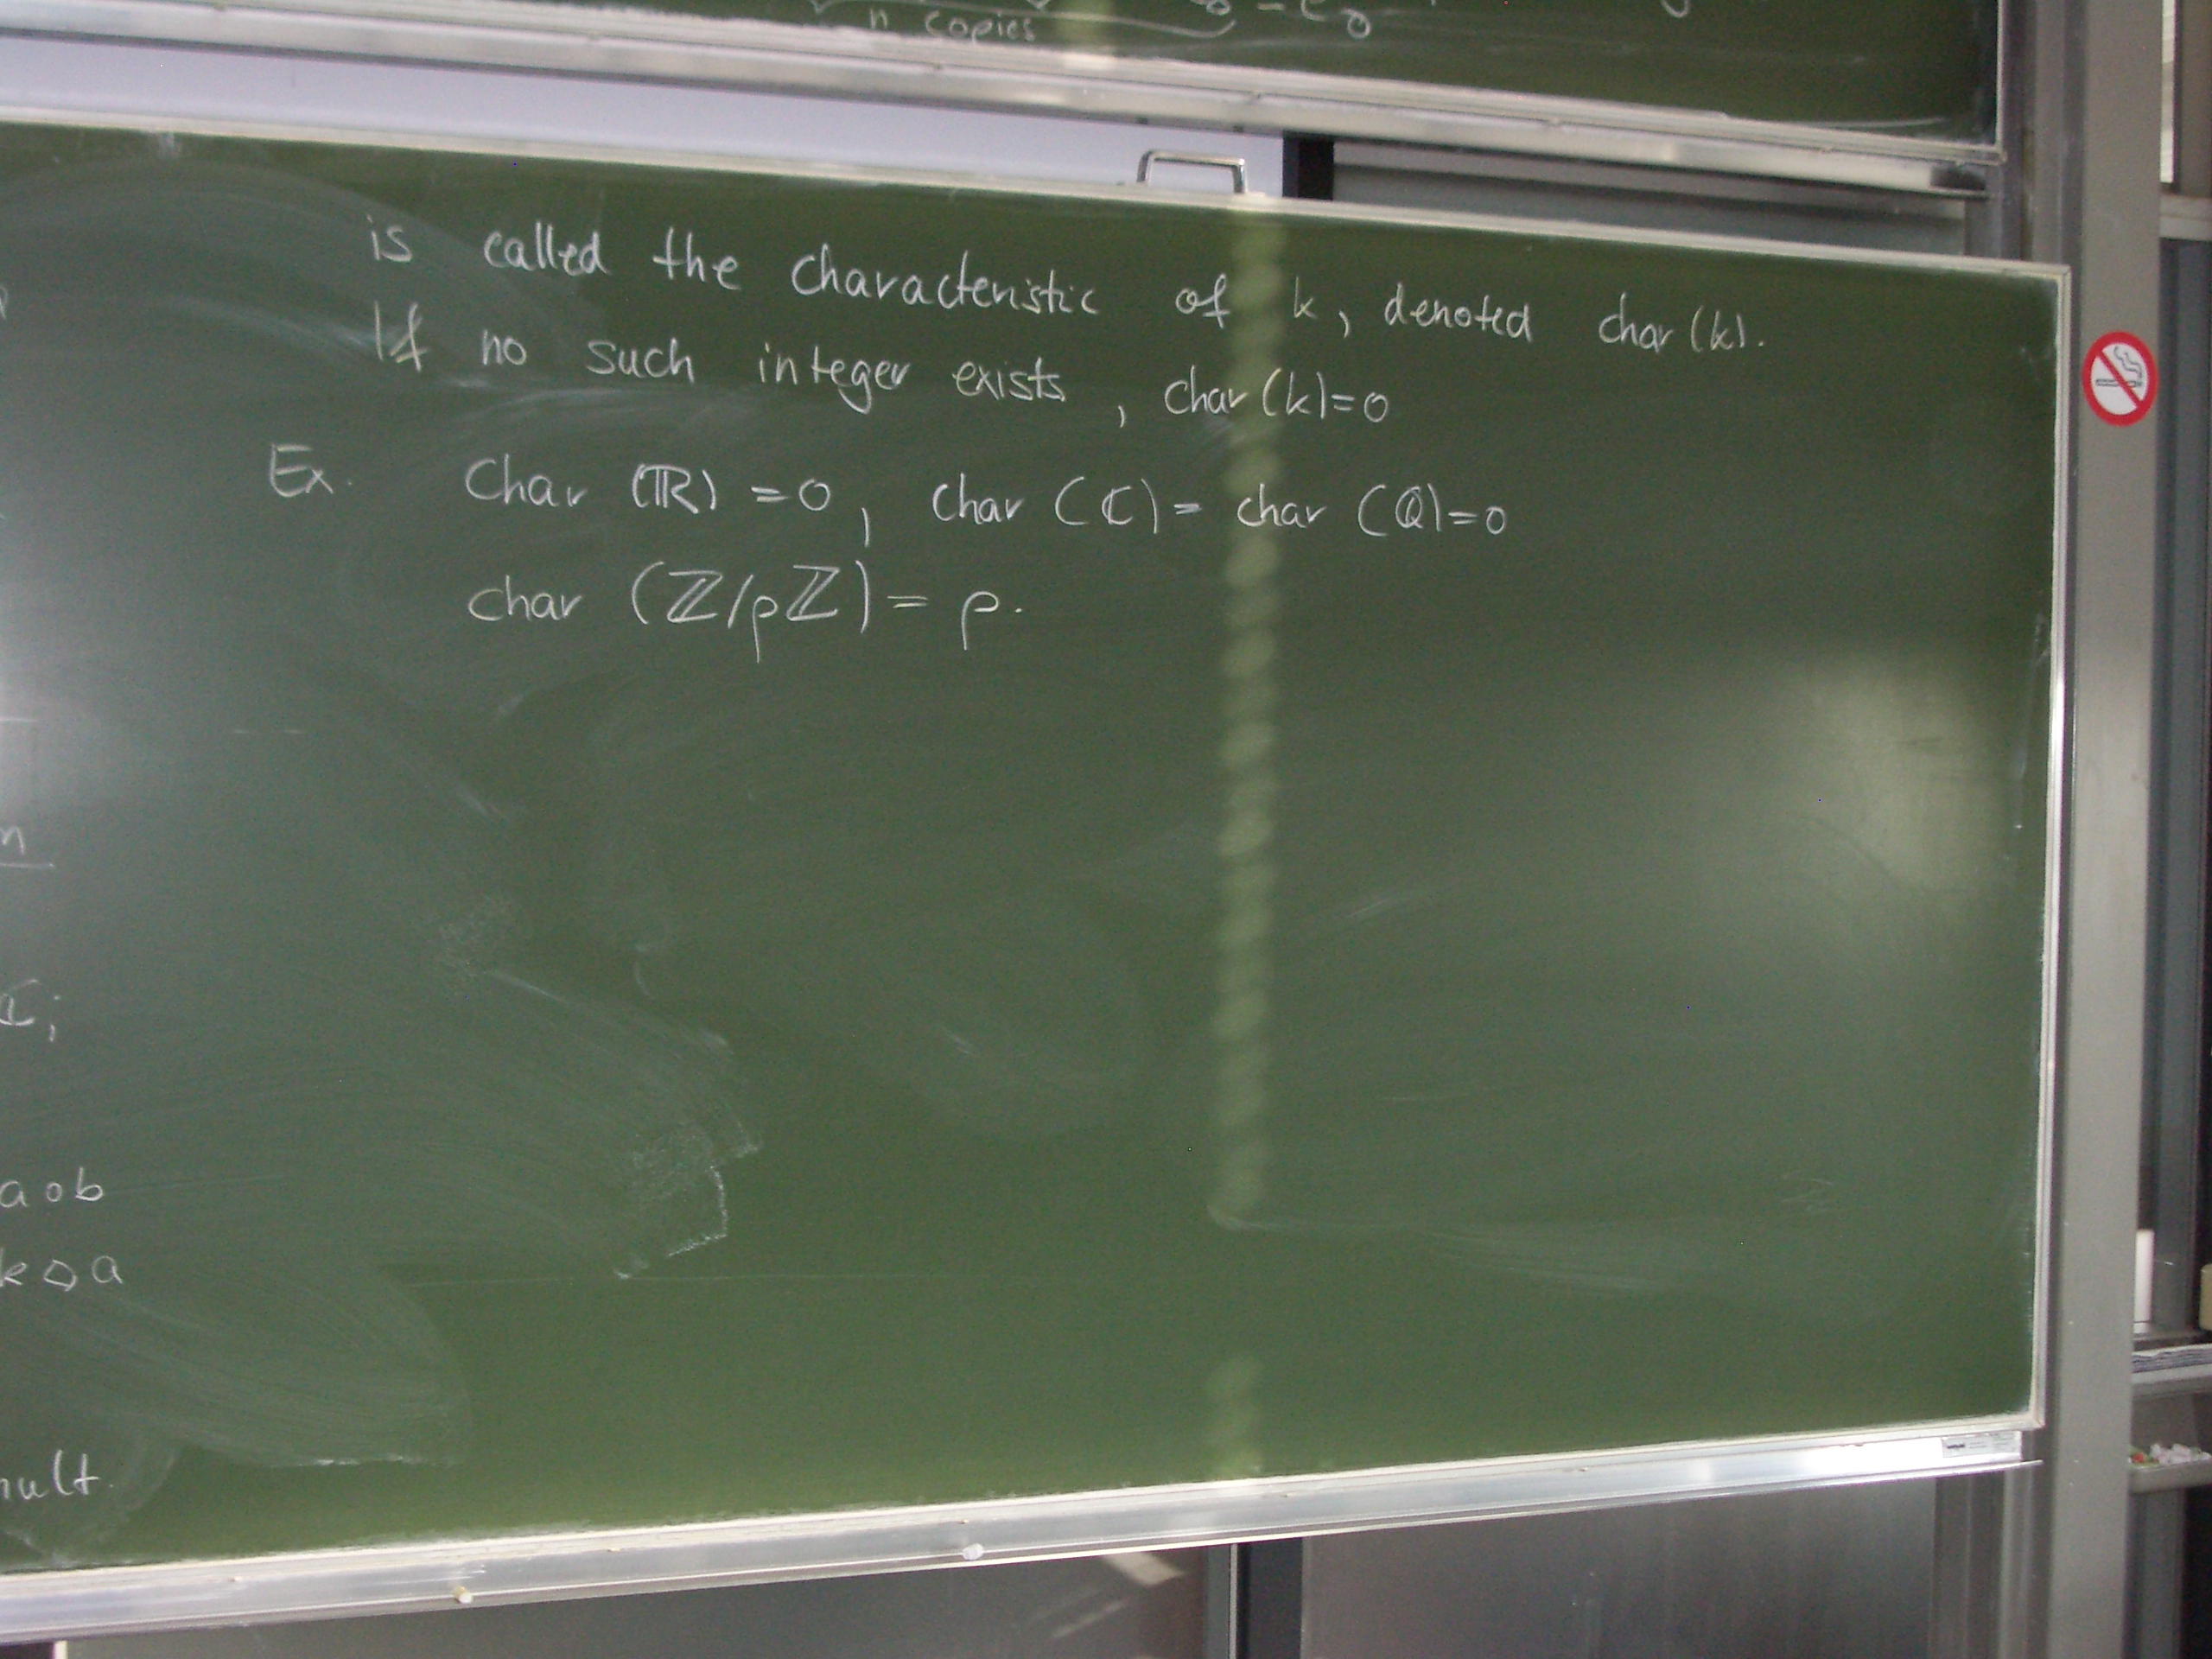 n copies
is called the characteristic of k, denoted char (k).
If no such integer exists, char (k)=0
Ex. Char (ℝ) = 0, char (ℂ) = char (ℚ)=0
char (ℤ/pℤ) = p.
n
ℂ;
a o b
a
mult.